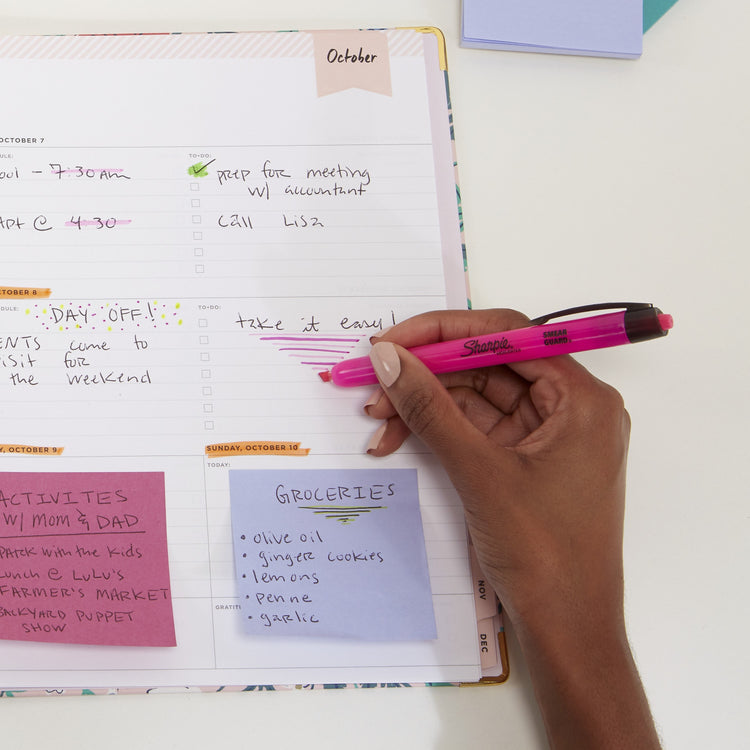 October
OCTOBER 7
TO-DO:
- 7:30 AM
prep for meeting
w/ accountant
@ 4:30
call Lisa
OCTOBER 8
TO-DO:
DAY OFF!
take it easy!
come to
visit for
the weekend
Sharpie
SMEAR
GUARD
OCTOBER 9
SUNDAY, OCTOBER 10
TODAY:
ACTIVITES
W/ MOM & DAD
PARK with the KIDS
LUNCH @ LULU'S
FARMER'S MARKET
BACKYARD PUPPET
SHOW
GROCERIES
• olive oil
• ginger cookies
• lemons
• penne
• garlic
NOV
DEC